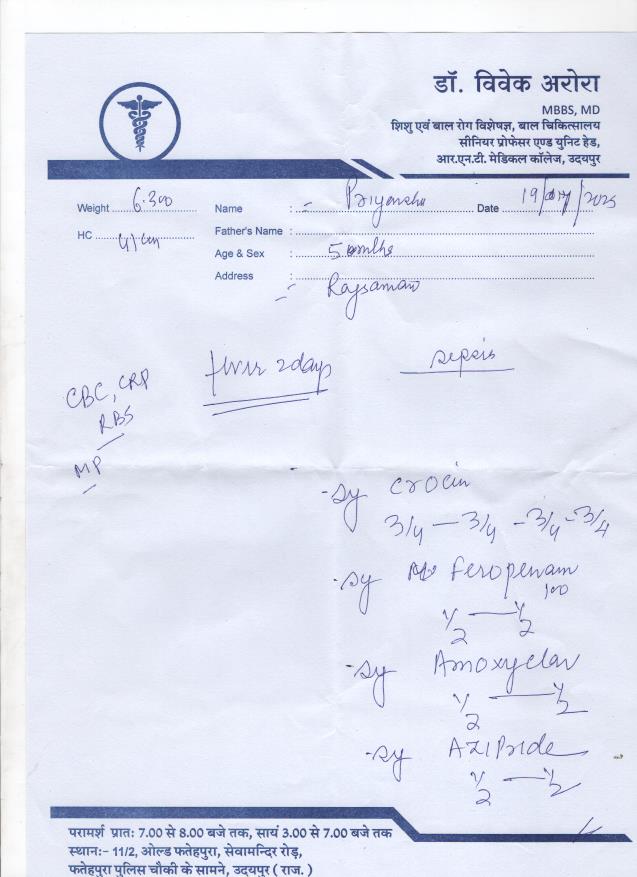 डॉ. विवेक अरोरा
MBBS, MD
शिशु एवं बाल रोग विशेषज्ञ, बाल चिकित्सालय
सीनियर प्रोफेसर एण्ड यूनिट हेड,
आर.एन.टी. मेडिकल कॉलेज, उदयपुर
Weight 6.300 Name : Priyanshu Date 19/ /2025
HC 41 cm Father's Name :
Age & Sex : 5 months
Address :
2 days sepsis
CBC, CRP
RBS
MP
sy crocin
3/4 — 3/4 – 3/4 – 3/4
sy Feropenam
100
1/2 — 1/2
sy Amoxyclav
1/2 — 1/2
sy AziPride
1/2 — 1/2
परामर्श प्रातः 7.00 से 8.00 बजे तक, सायं 3.00 से 7.00 बजे तक
स्थान:- 11/2, ओल्ड फतेहपुरा, सेवामन्दिर रोड़,
फतेहपुरा पुलिस चौकी के सामने, उदयपुर ( राज. )